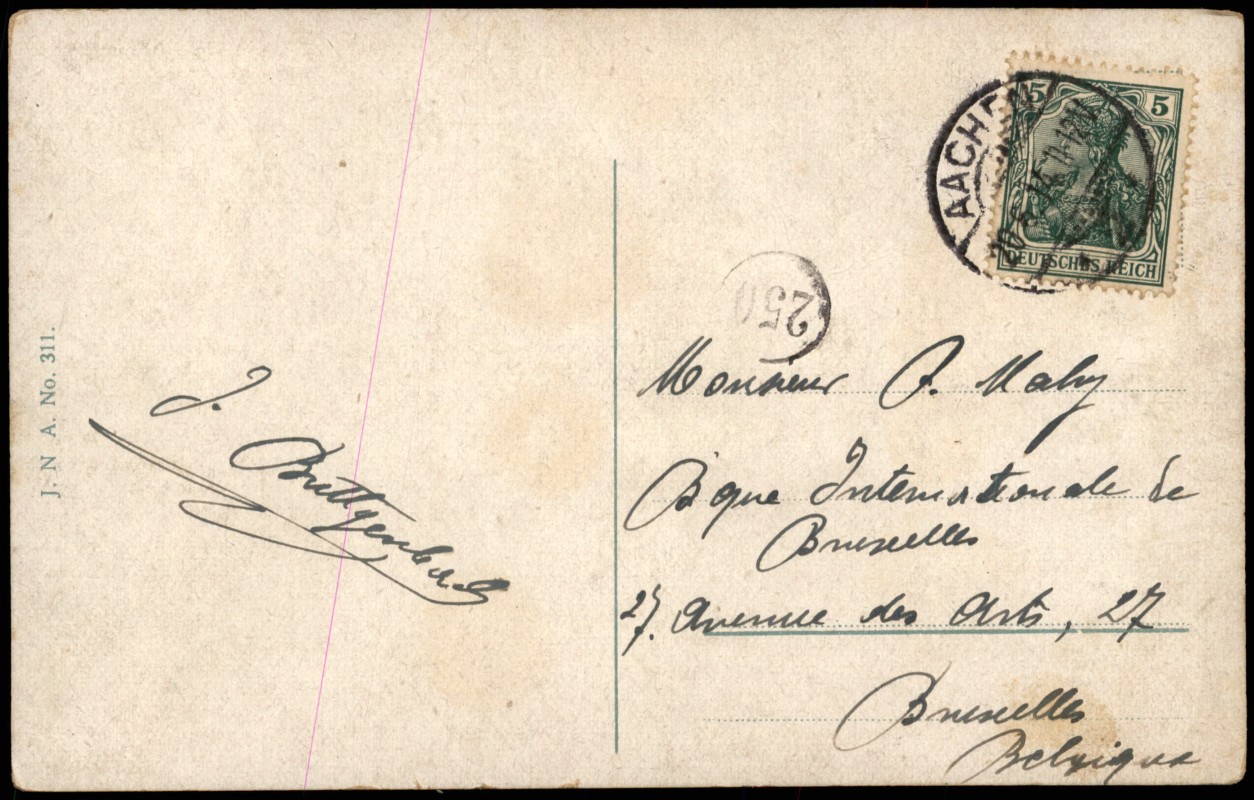 J. N A. No. 311.
J. Buttgenbach
AACHEN
5 5
DEUTSCHES REICH
250
Monsieur A. Mahy
Bque Internationale de
Bruxelles
27. Avenue des Arts, 27
Bruxelles
Belgique